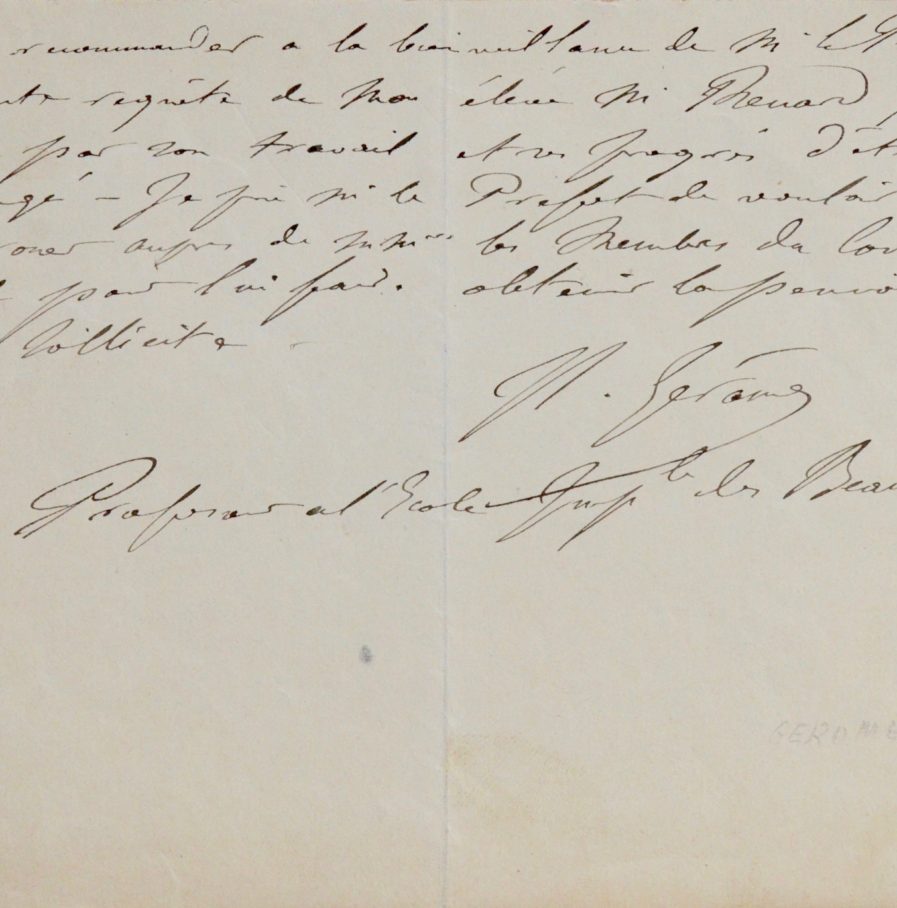 recommander a la bienveillance de Mr le
requête de mon élève Mr Renard
par son travail et ses progrès d'êt
agé - Je prie Mr le Prefect de vouloir
oner aupres de MMrs les Membres du Con
pour lui faire obtenir la pensio
sollicite -
Gérôme
Professeur a l'Ecole Imple des Beau
GEROME